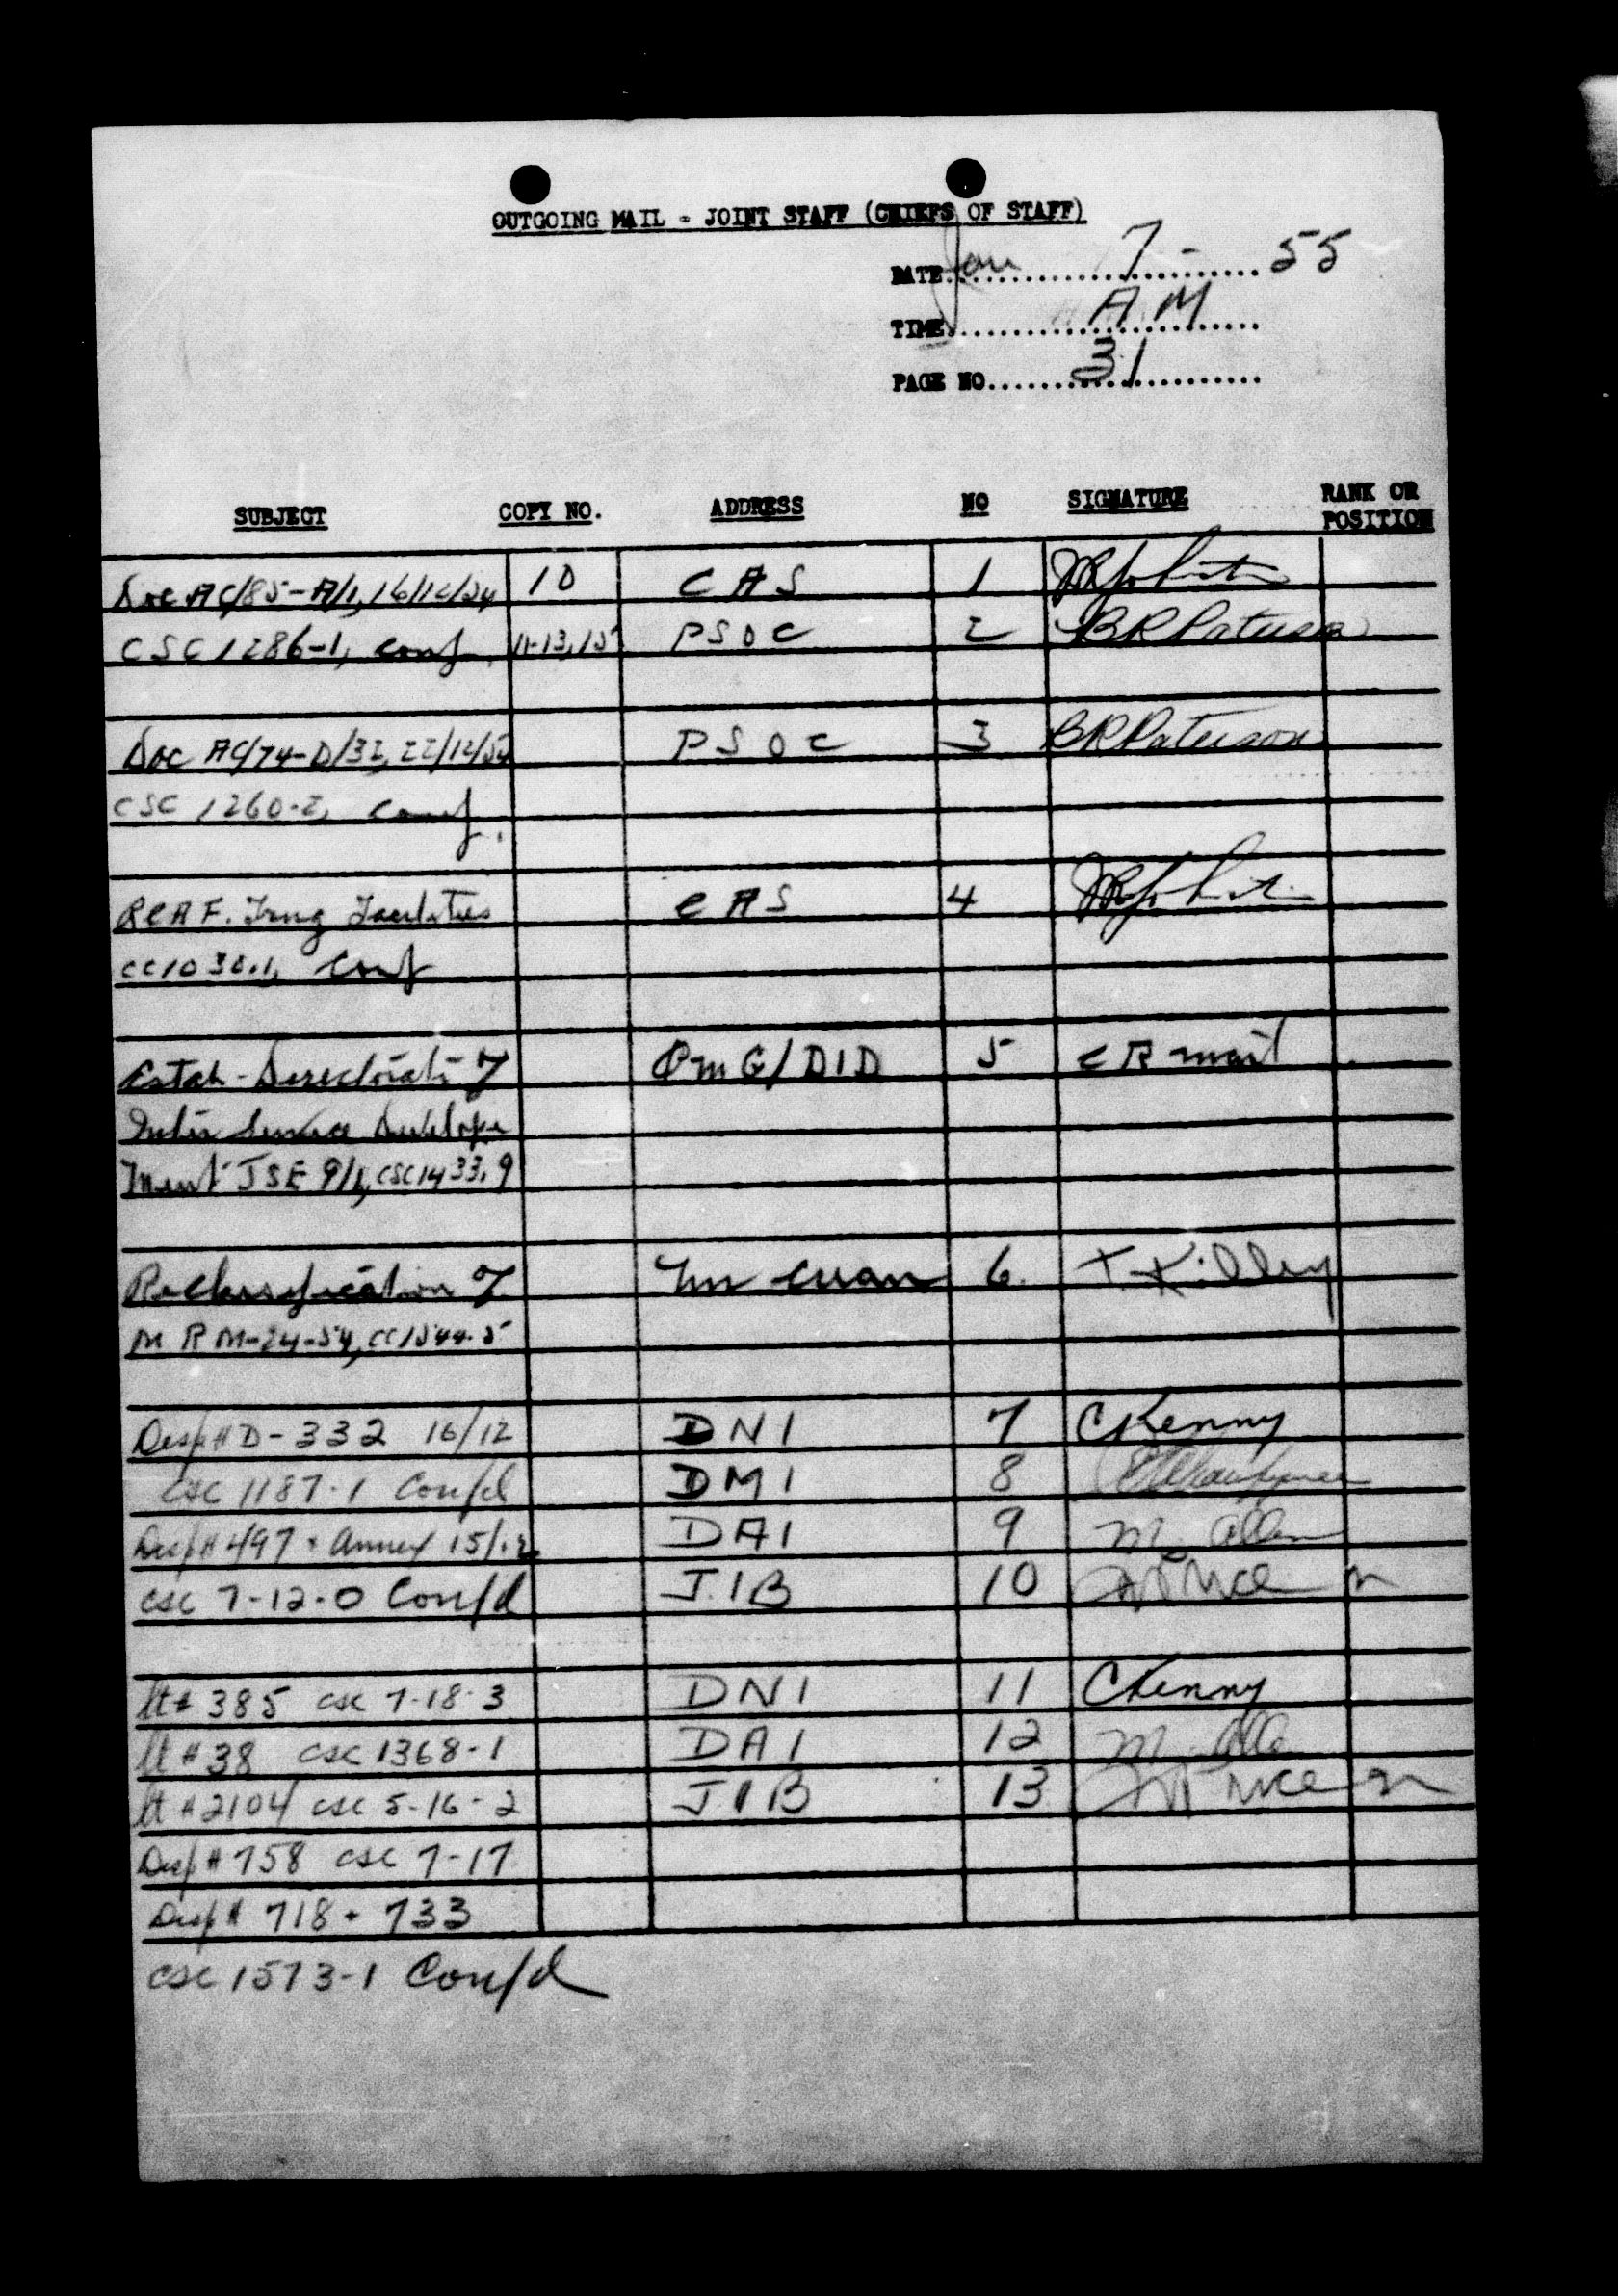 OUTGOING MAIL - JOINT STAFF (CHIEFS OF STAFF)
DATE Jan 7 - 55
TIME A M
PAGE NO 31
SUBJECT COPY NO. ADDRESS NO SIGNATURE RANK OR POSITION
Doc AC/85-A/1, 16/12/54 10 CAS 1
CSC 1286-1, Conf. 11-13, 15 PSOC 2 BR Paterson
Doc AC/74-D/32, 22/12/54 PSOC 3 BR Paterson
CSC 1260-2, Conf.
RCAF. Trng Facilities CAS 4
CC1030.1, Conf
Estab - Directorate of QMG/DID 5
Inter Service Develop
ment JSE 9/1, CSC 1433.9
Reclassification of 6. T. Killey
M R M-24-54, CC1544-5
Desp # D-332 16/12 DNI 7 C Kenny
CSC 1187-1 Conf'd DMI 8
Desp # 497 + Annex 15/12 DAI 9 M. Allen
CSC 7-12-0 Conf'd JIB 10
lt # 385 CSC 7-18-3 DNI 11 C Kenny
lt # 38 CSC 1368-1 DAI 12 M. Alle
lt # 2104 CSC 5-16-2 JIB 13
Desp # 758 CSC 7-17
Desp # 718 + 733
CSC 1573-1 Conf'd